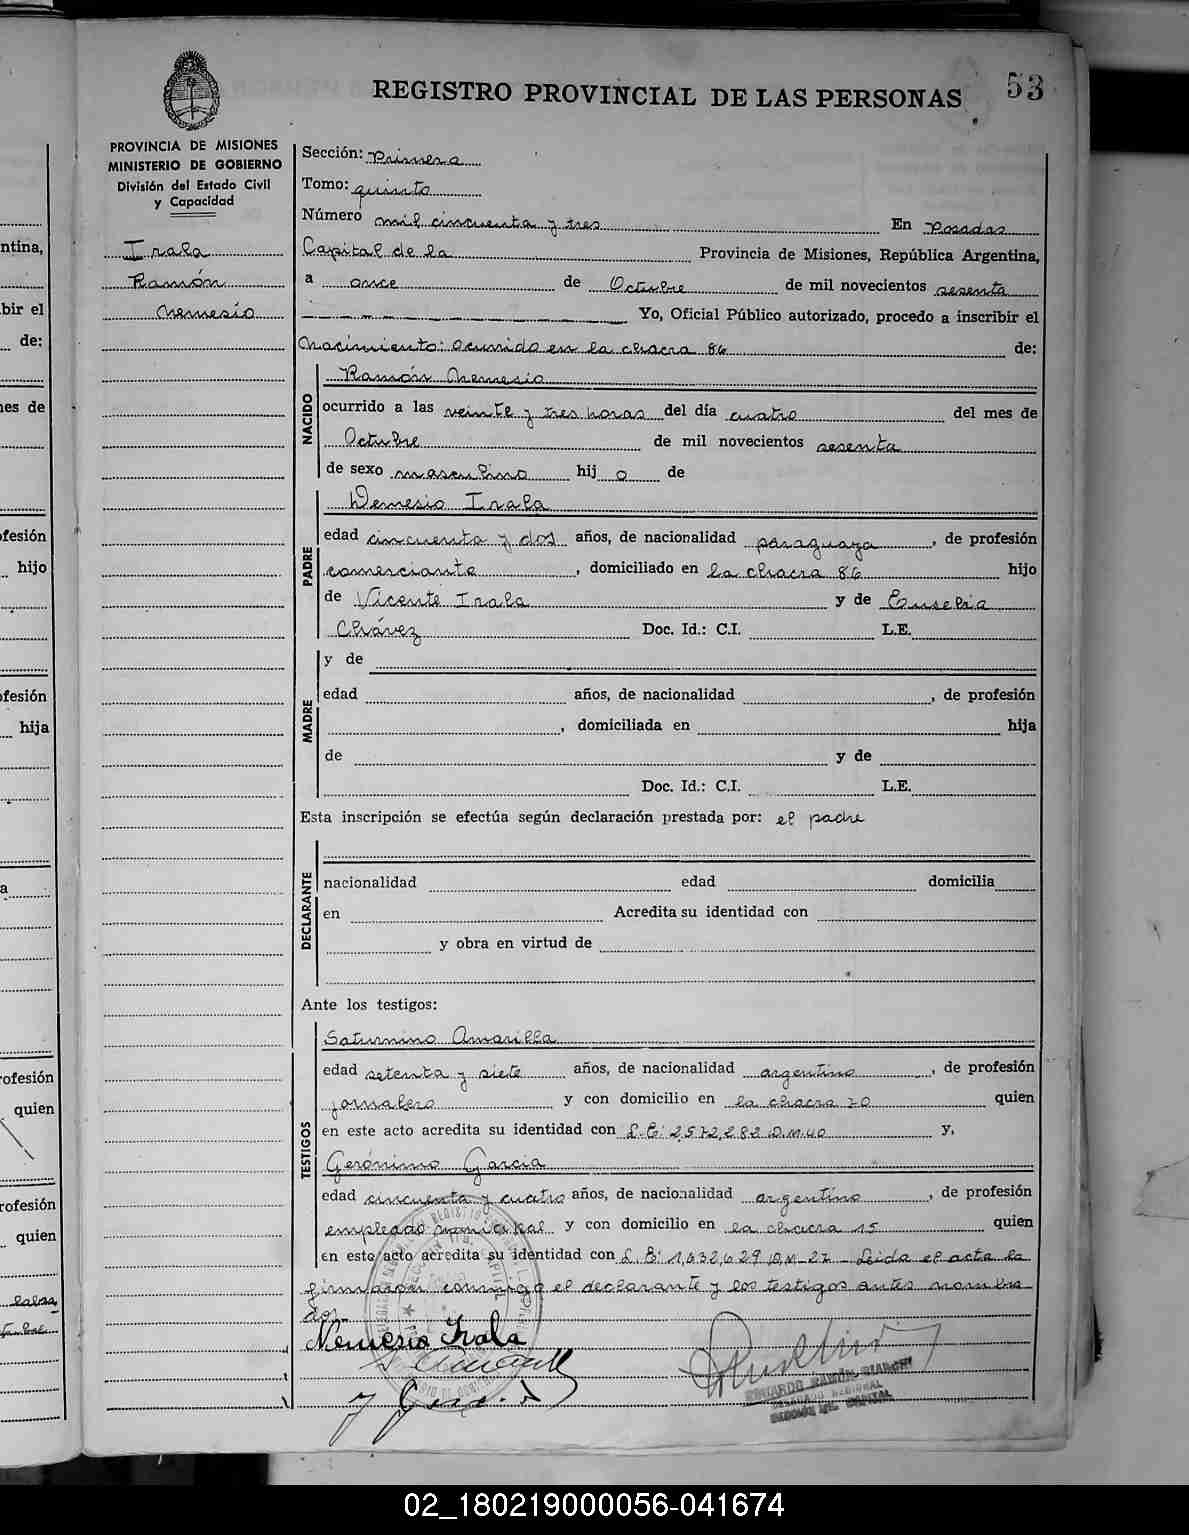 REGISTRO PROVINCIAL DE LAS PERSONAS
53
PROVINCIA DE MISIONES
MINISTERIO DE GOBIERNO
División del Estado Civil
y Capacidad
Irala
Ramón
Nemesio
Sección: Primera
Tomo: quinto
Número mil cincuenta y tres En Posadas
Capital de la Provincia de Misiones, República Argentina,
a once de Octubre de mil novecientos sesenta
Yo, Oficial Público autorizado, procedo a inscribir el
Nacimiento: ocurrido en la chacra 86 de:
NACIDO
Ramón Nemesio
ocurrido a las veinte y tres horas del día cuatro del mes de
Octubre de mil novecientos sesenta
de sexo masculino hij o de
PADRE
Nemesio Irala
edad cincuenta y dos años, de nacionalidad paraguaya, de profesión
comerciante, domiciliado en la chacra 86 hijo
de Vicente Irala y de Eusebia
Chávez Doc. Id.: C.I. L.E.
MADRE
y de
edad años, de nacionalidad , de profesión
, domiciliada en hija
de y de
Doc. Id.: C.I. L.E.
Esta inscripción se efectúa según declaración prestada por: el padre
DECLARANTE
nacionalidad edad domicilia
en Acredita su identidad con
y obra en virtud de
Ante los testigos:
TESTIGOS
Saturnino Amarilla
edad setenta y siete años, de nacionalidad argentino, de profesión
jornalero y con domicilio en la chacra 70 quien
en este acto acredita su identidad con L.E: 2,572,282 D.M. 40 y,
Gerónimo Garcia
edad cincuenta y cuatro años, de nacionalidad argentino, de profesión
empleado municipal y con domicilio en la chacra 15 quien
en este acto acredita su identidad con L.E: 1,632,629 D.M. 27 Leida el acta la
firmaron conmigo el declarante y los testigos antes nombra
dos.
Nemesio Irala
EDUARDO RAMÓN BIANCHI
DELEGADO REGIONAL
SECCION 1ra. CAPITAL
ntina,
bir el
de:
es de
ofesión
hijo
ofesión
hija
ofesión
quien
rofesión
quien
02_180219000056-041674